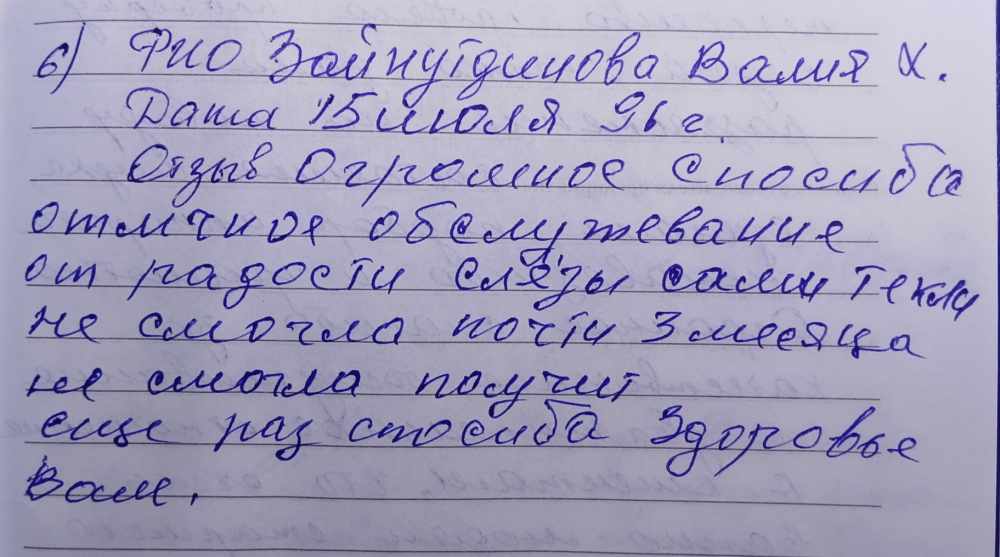 6) ФИО Зайнутдинова Валия Х.
Дата 15 июля 96 г.
Отзыв Огромное спосиба
отличное обслужевание
от радости слёзы сами текли
не смогла почти 3 месяца
не смогла получит
еще раз спосиба Здоровье
Вам.